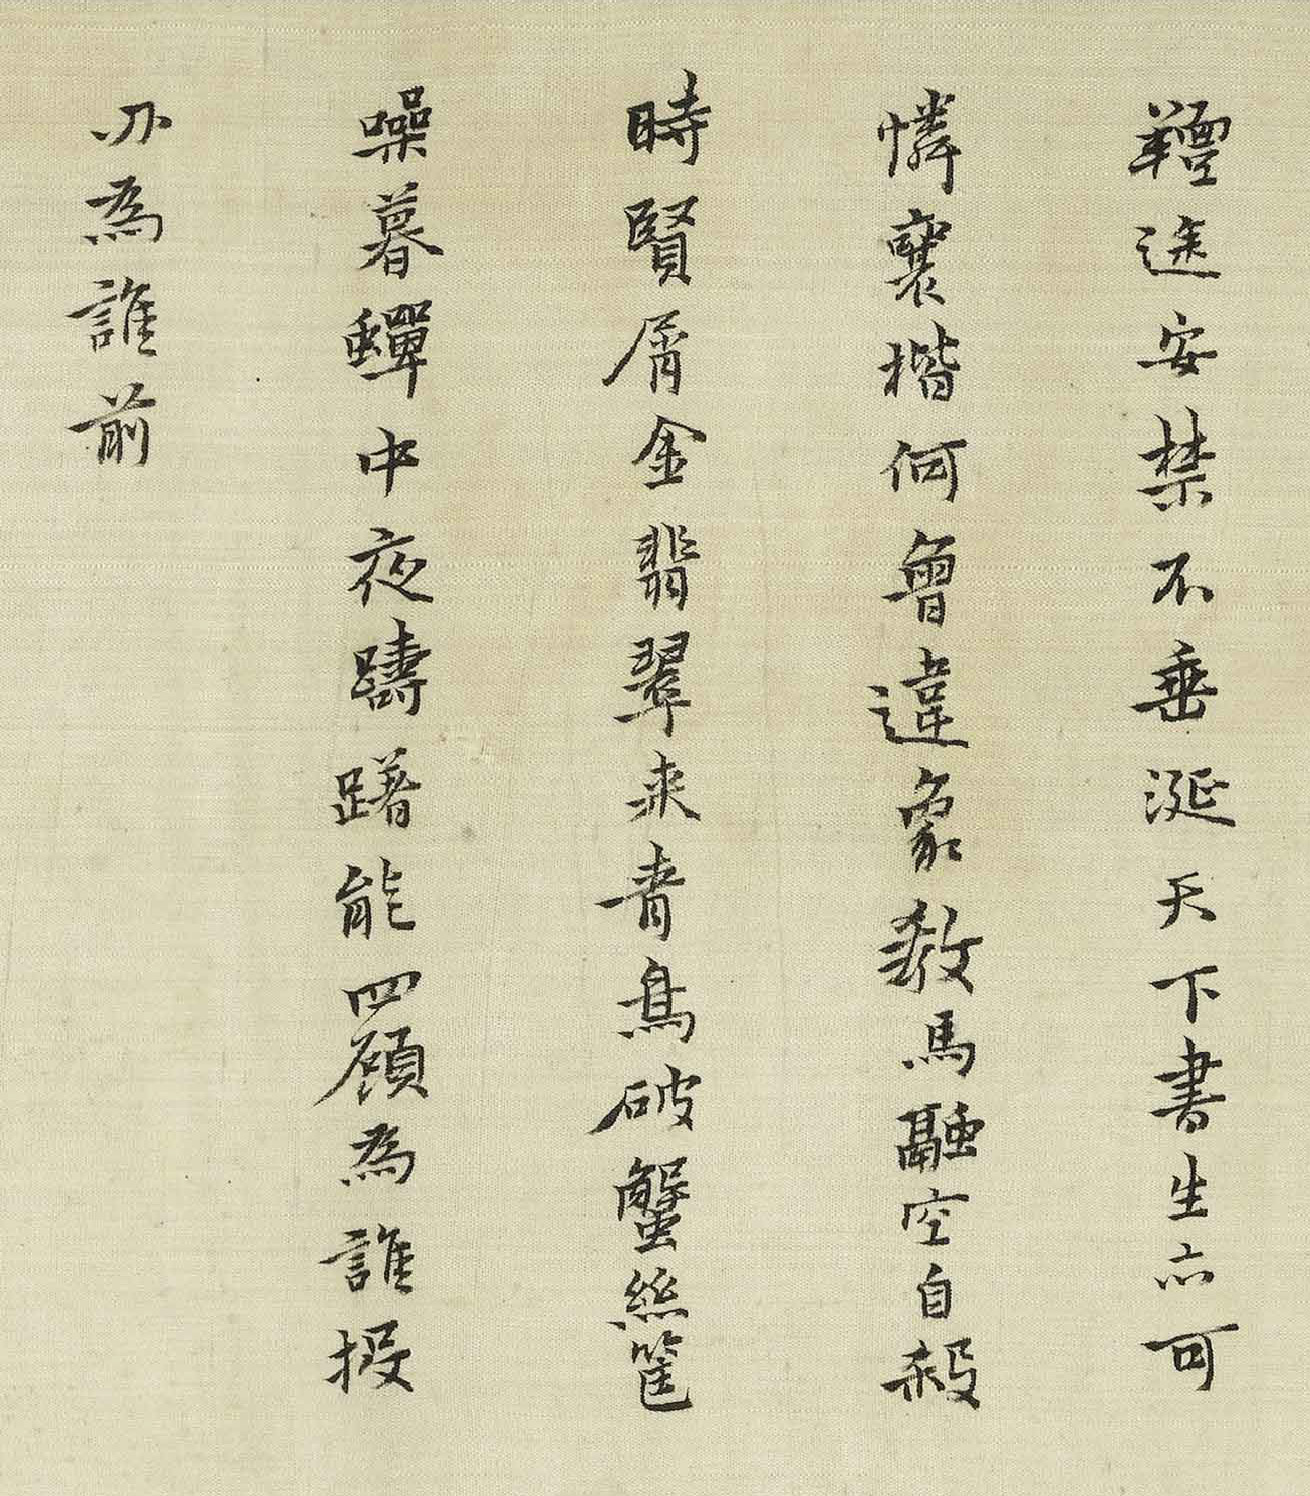 羶途安禁不垂涎天下書生亦可
憐襄楷何曾違象教馬融空自殺
時賢屑金翡翠来青鳥破蟹絲筐
噪暮蟬中夜躊躇能四顧為誰投
刃為誰前